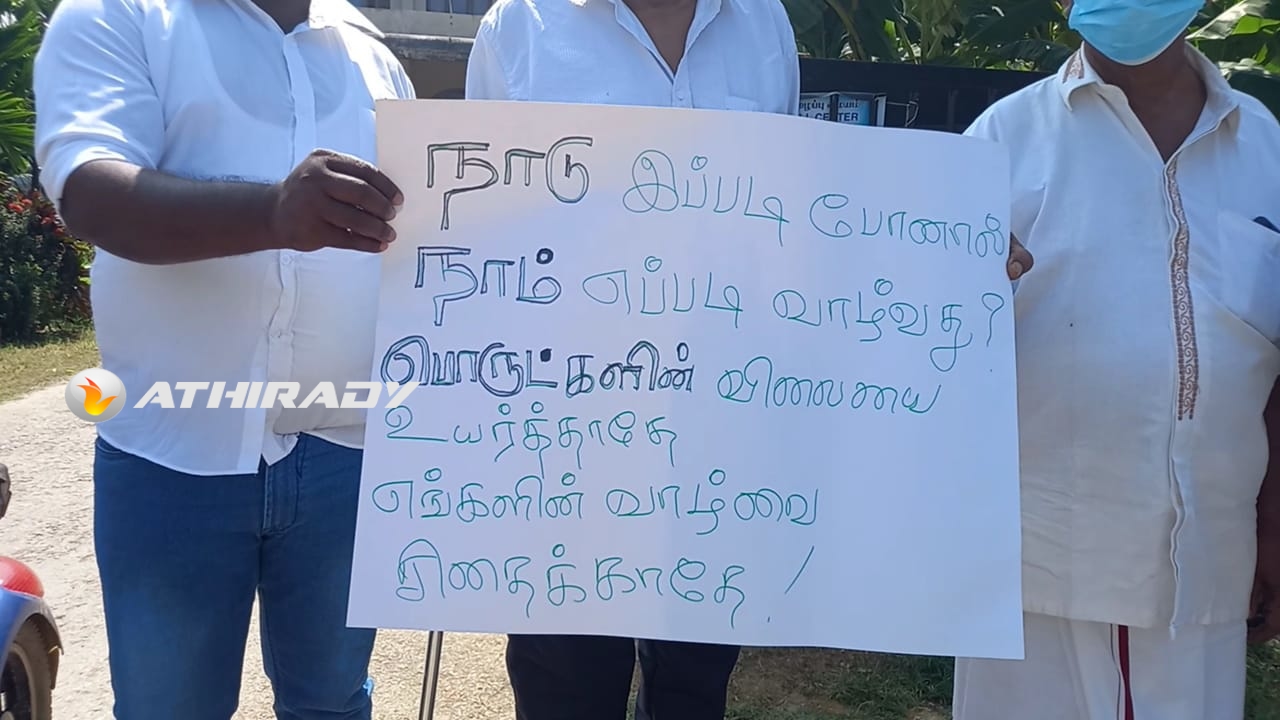 நாடு இப்படி போனால்
நாம் எப்படி வாழ்வது?
பொருட்களின் விலையை
உயர்த்தாதே
எங்களின் வாழ்வை
சிதைக்காதே!
ATHIRADY
CENTER